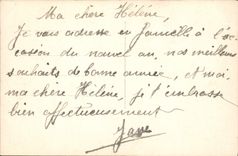 Ma chère Hélène,
Je vous adresse en famille à l'oc-
casion du nouvel an, nos meilleurs
souhaits de bonne année, et moi
ma chère Hélène, je t'embrasse
bien affectueusement